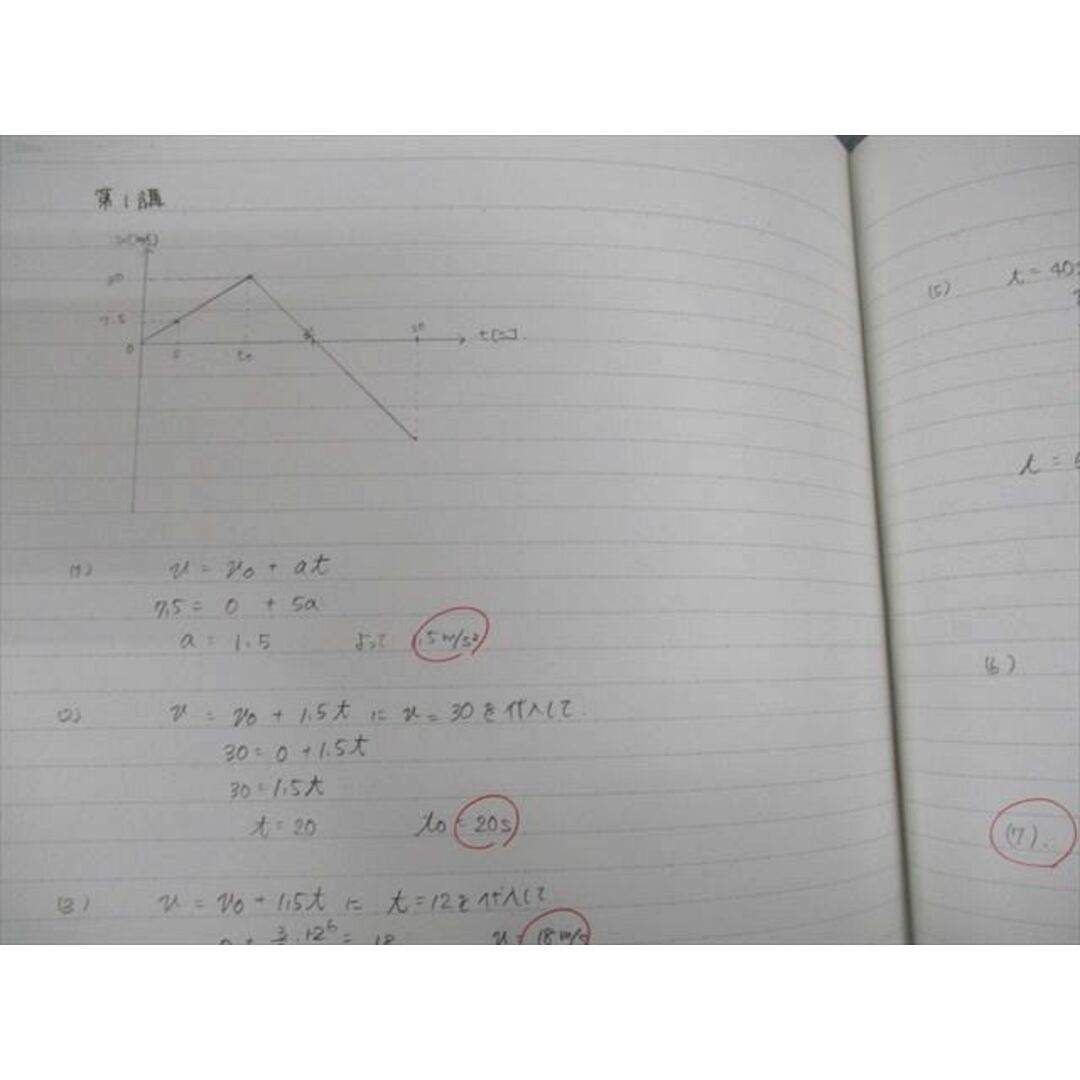 第1講
v[m/s]
30
7.5
0 5 t₀ t[s]
(1) v = v₀ + at
7.5 = 0 + 5a
a = 1.5 よって 1.5m/s²
(2) v = v₀ + 1.5t に v = 30 を代入して
30 = 0 + 1.5t
30 = 1.5t
t = 20 t₀ = 20s
(3) v = v₀ + 1.5t に t = 12 を代入して
= 18 v = 18m/s
(5) t = 40s
t =
(6)
(7).